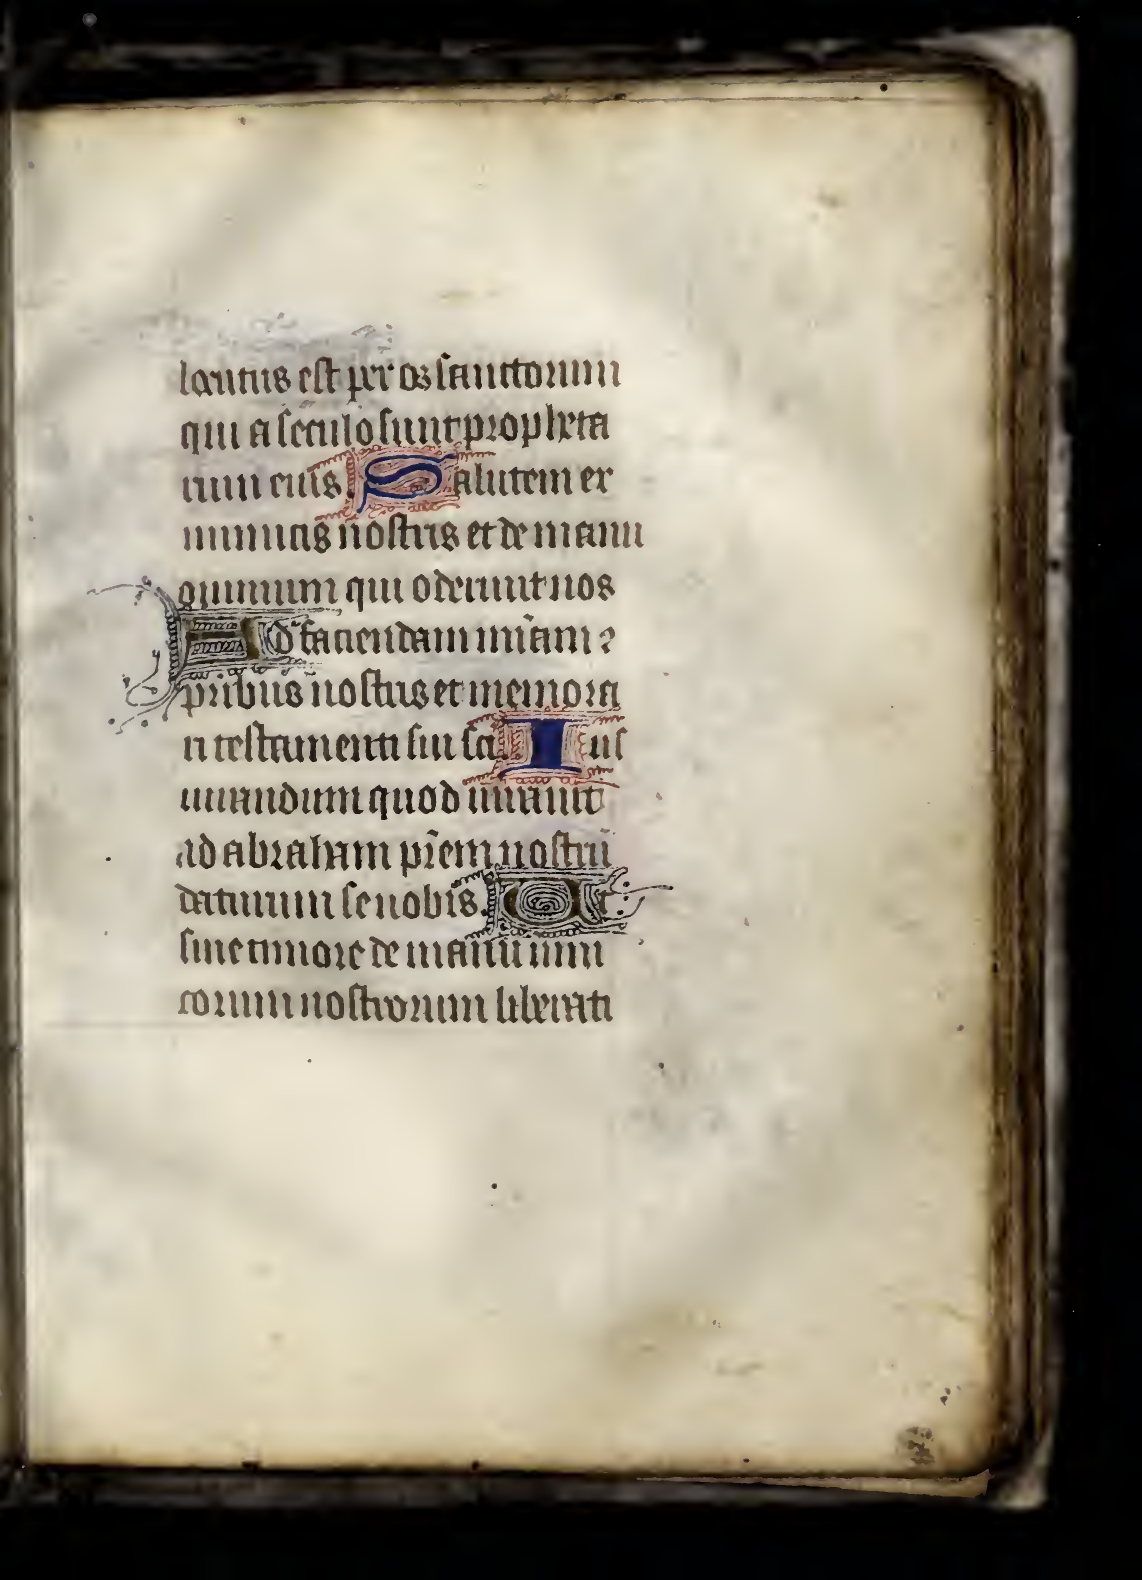 locutus est per os sanctorum
qui a seculo sunt propheta
rum eius. Salutem ex
inimicis nostris et de manu
omnium qui oderunt nos
Ad faciendam mīam ?
pribus nostris et memora
ri testamenti sui sci. Ius
iurandum quod iurauit
ad abraham pr̄em nostrū
daturum se nobis. Ut
sine timore de manu inimi
corum nostrorum liberati